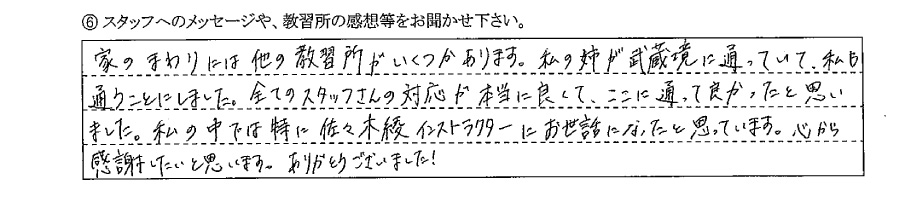 ⑥ スタッフへのメッセージや、教習所の感想等をお聞かせ下さい。
家のまわりには他の教習所がいくつかあります。私の姉が武蔵境に通っていて、私も
通うことにしました。全てのスタッフさんの対応が本当に良くて、ここに通って良かったと思い
ました。私の中では特に佐々木綾インストラクターにお世話になったと思っています。心から
感謝したいと思います。ありがとうございました!